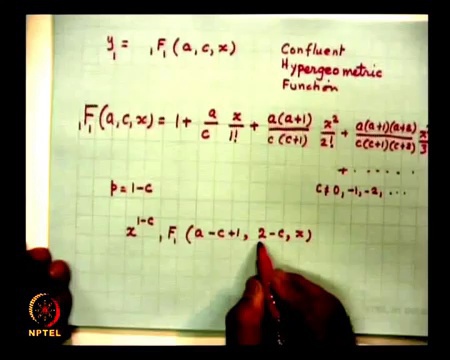 y₁ = ₁F₁ (a, c, x)
Confluent
Hypergeometric
Function
₁F₁(a, c, x) = 1 + a/c x/1! + a(a+1)/c(c+1) x²/2! + a(a+1)(a+2)/c(c+1)(c+2) x³/3!
+ ......
p = 1-c
c ≠ 0, -1, -2, ...
x^{1-c} ₁F₁ (a-c+1, 2-c, x)
NPTEL